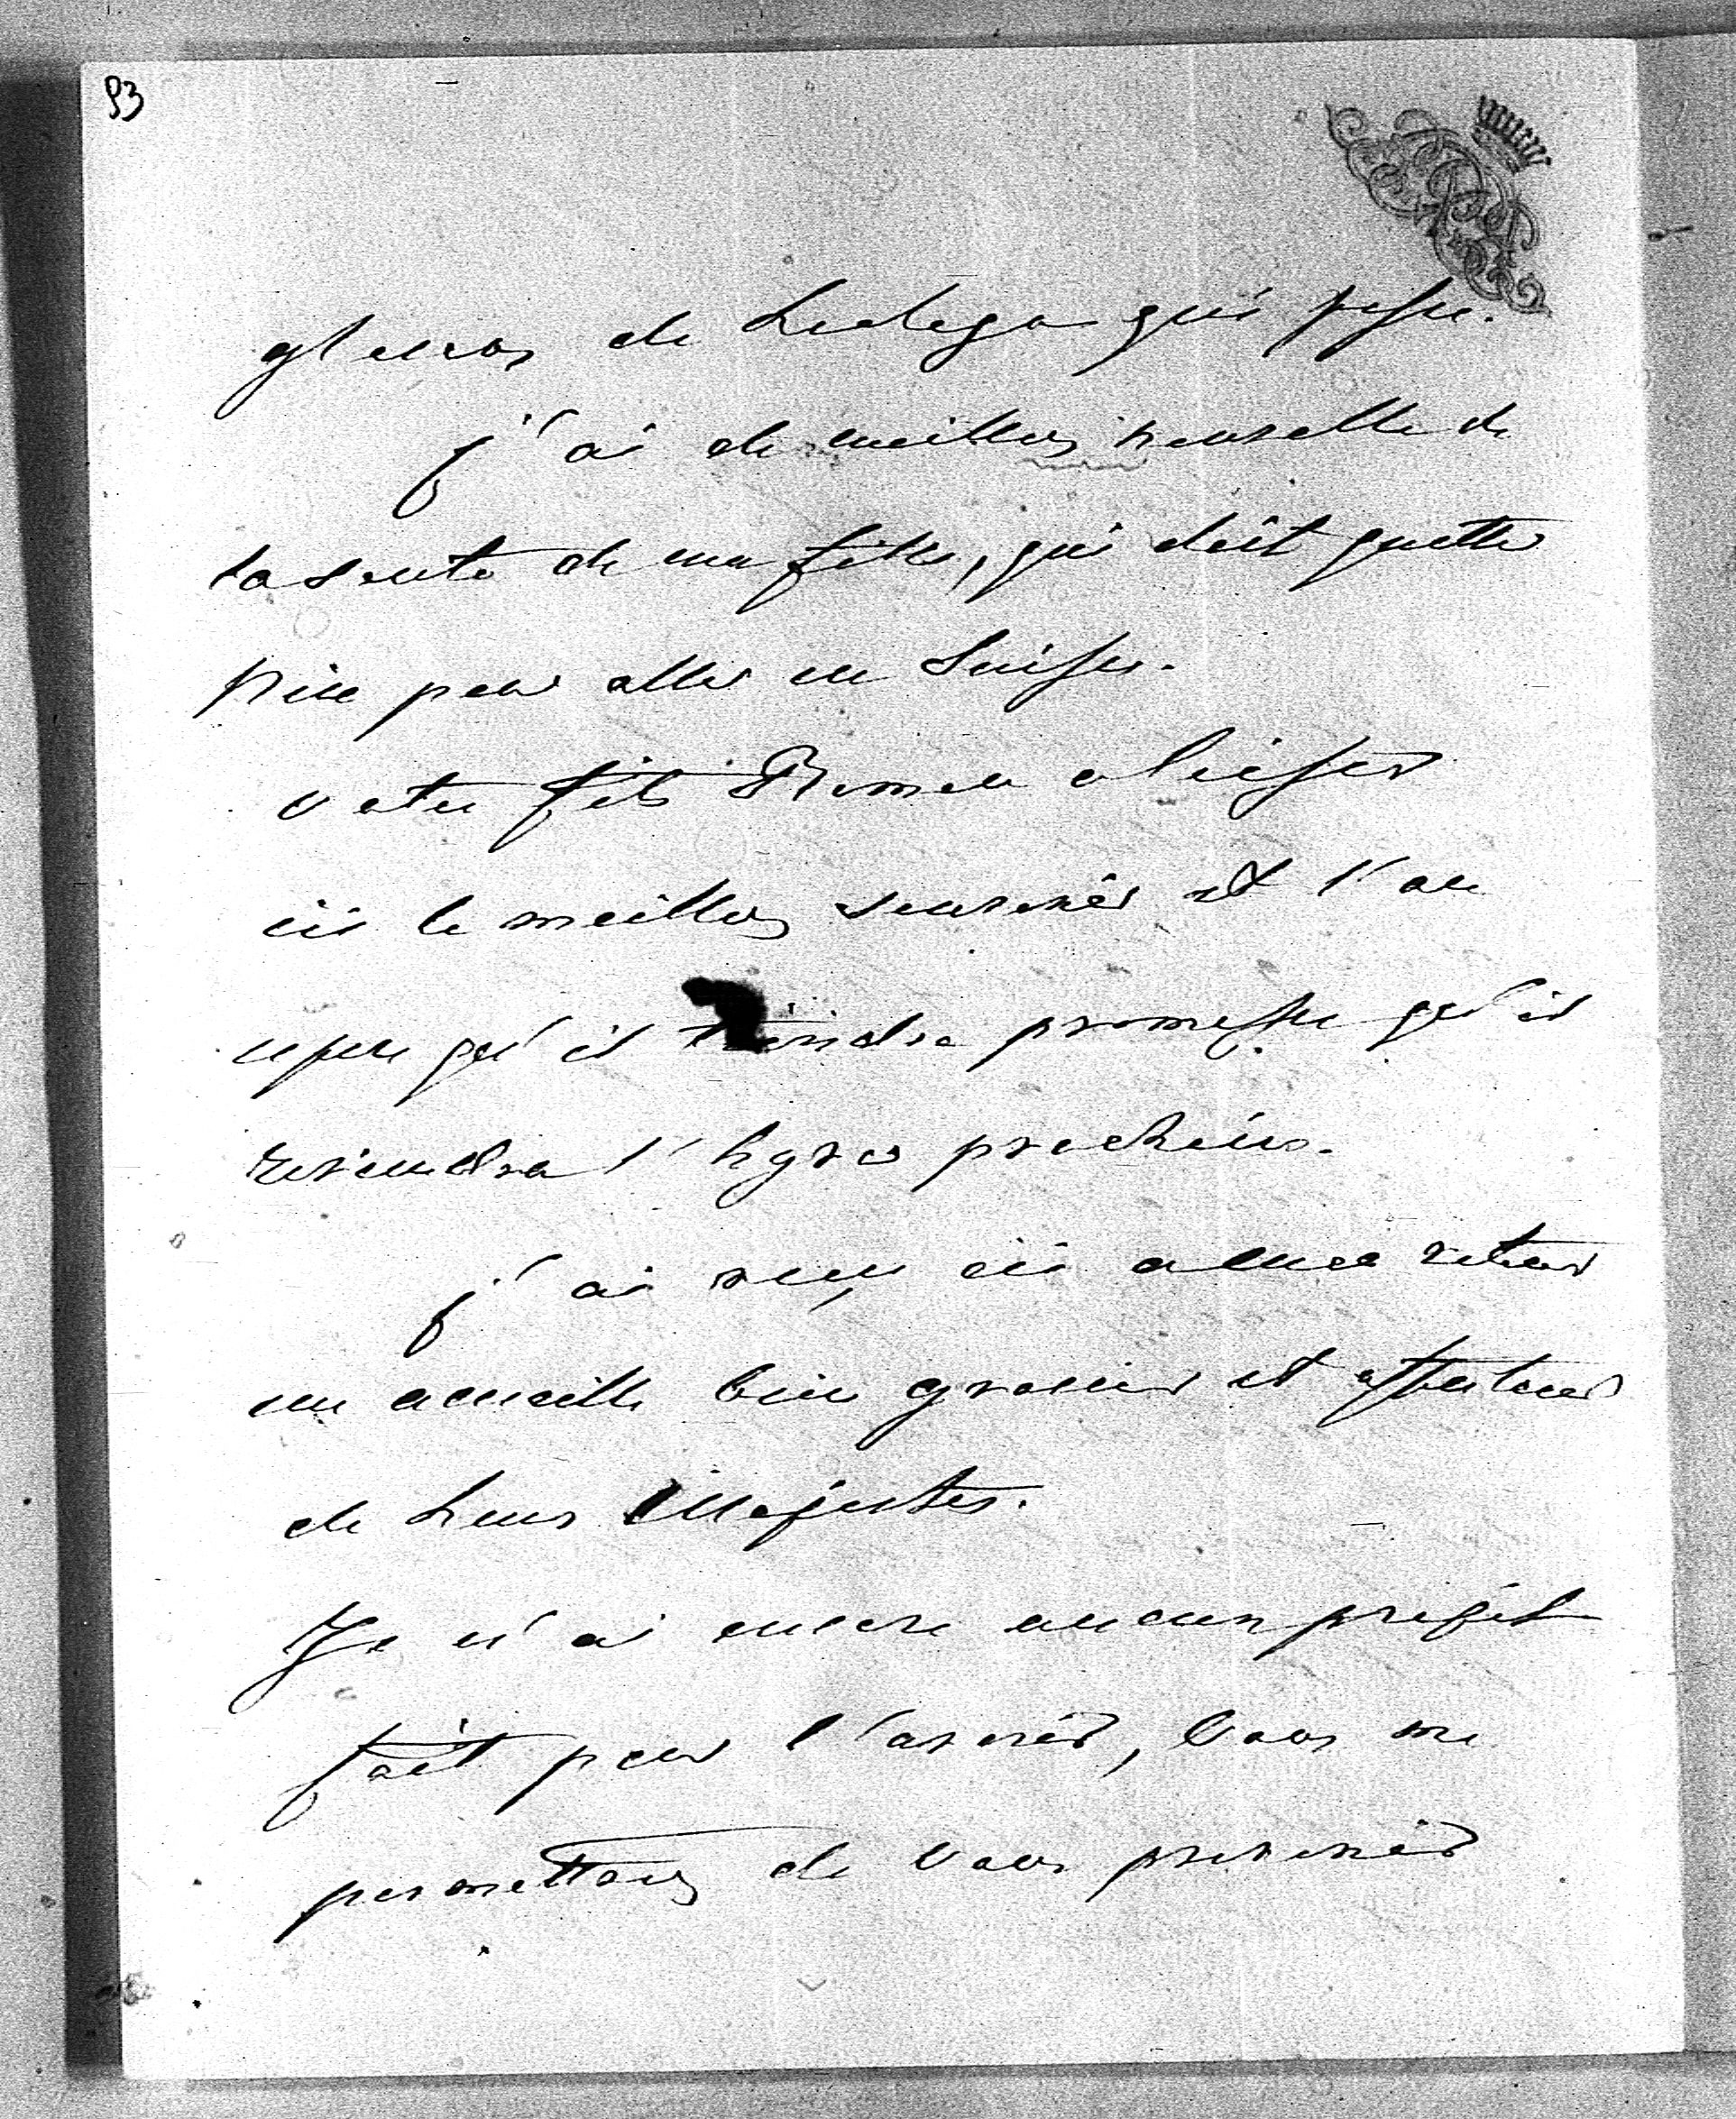 93
glacons de Ladoga qui passe.
j'ai de meilleurs nouvelle de
la sante de ma fille, qui doit quitter
Nice pour aller en Suisse.
Votre fils Roman a laisser
ici le meilleurs souvenir et l'on
espere qu'il tiendra promesse qu'il
reviendra l'hyver prochain.
j'ai reçu ici a mon retour
un acceuille bien gracieux et affectueux
de Leurs Majestes.
Je n'ai encore aucun projet
fait pour l'avenir, Vous me
permettrez de Vous prevenir